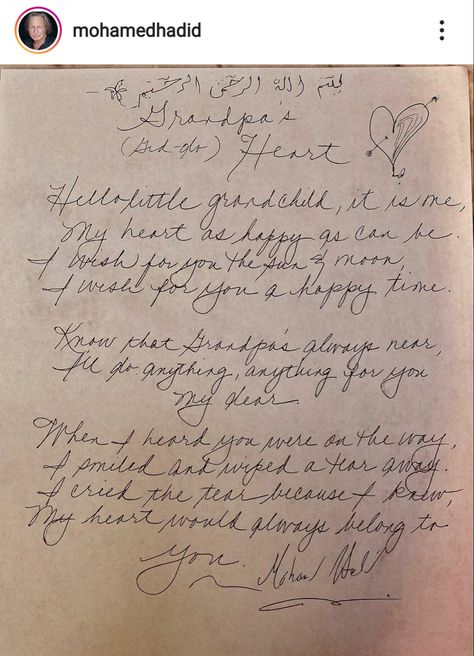 mohamedhadid
بسم الله الرحمن الرحيم
Grandpa's
(Gid-do) Heart
Hello little grandchild, it is me,
My heart as happy as can be.
I wish for you the sun & moon,
I wish for you a happy time.
Know that Grandpa's always near,
I'll do anything, anything for you
my dear.
When I heard you were on the way,
I smiled and wiped a tear away.
I cried the tear because I knew,
My heart would always belong to
you.